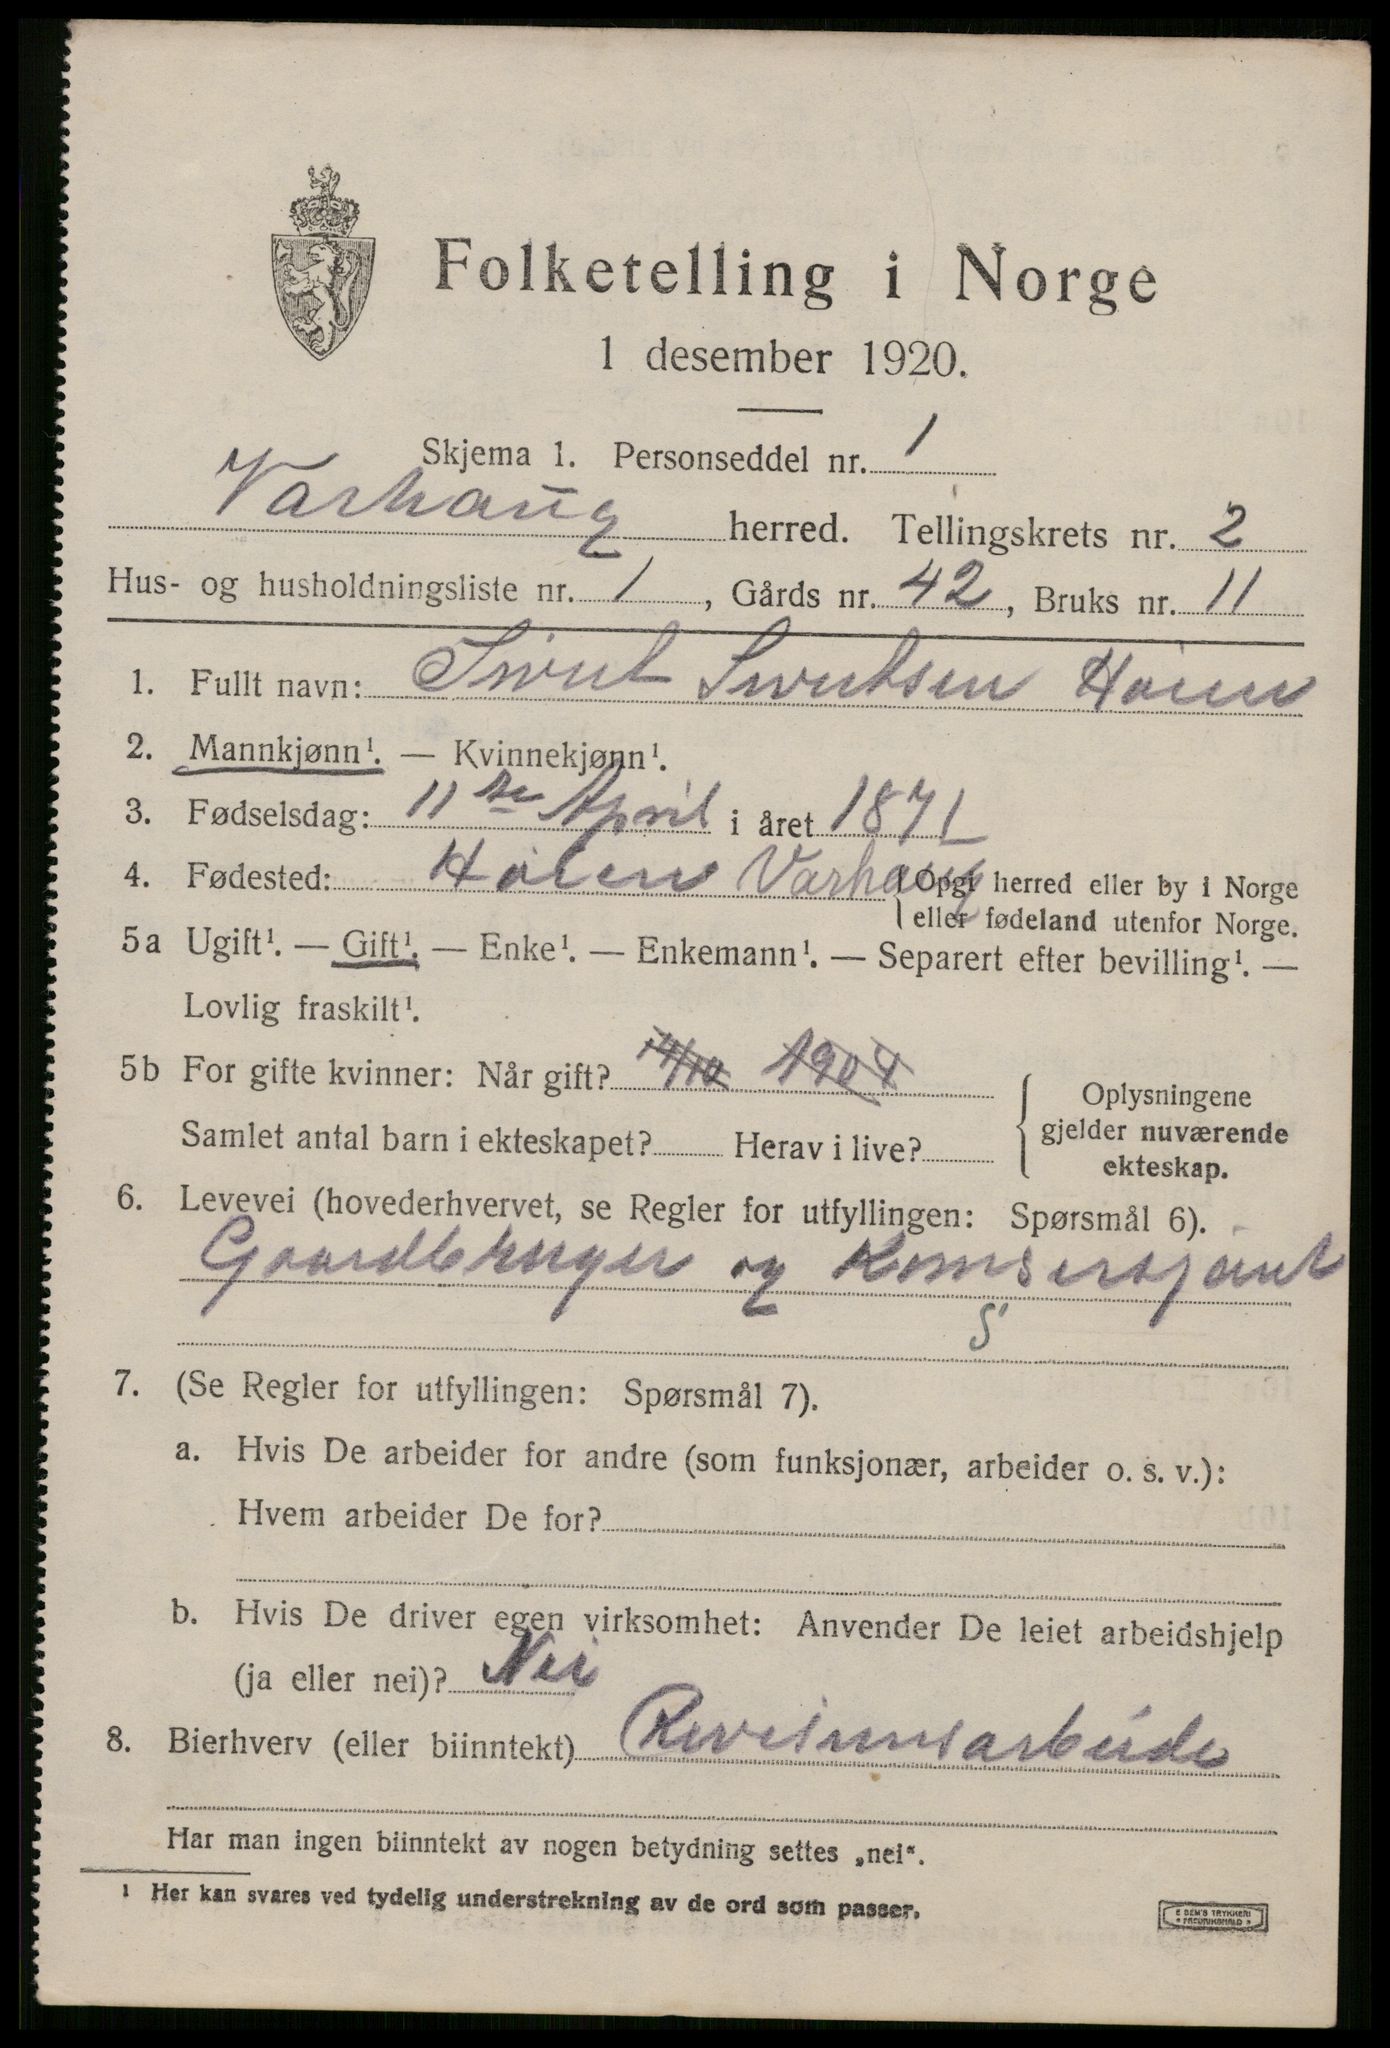 Folketelling i Norge
1 desember 1920.
Skjema 1. Personseddel nr. 1
Varhaug herred. Tellingskrets nr. 2
Hus- og husholdningsliste nr. 1, Gårds nr. 42, Bruks nr. 11
1. Fullt navn: Sivert Sivertsen Höien
2. Mannkjønn¹. — Kvinnekjønn¹.
3. Fødselsdag: 11te April i året 1871
4. Fødested: Höien Varhaug {Opgi herred eller by i Norge
eller fødeland utenfor Norge.
5a Ugift¹. — Gift¹. — Enke¹. — Enkemann¹. — Separert efter bevilling¹. —
Lovlig fraskilt¹.
5b For gifte kvinner: Når gift? 14/10 1904
Oplysningene
gjelder nuværende
ekteskap.
Samlet antal barn i ekteskapet? Herav i live?
6. Levevei (hovederhvervet, se Regler for utfyllingen: Spørsmål 6).
Gaardbruger og Komsersjant
S
7. (Se Regler for utfyllingen: Spørsmål 7).
a. Hvis De arbeider for andre (som funksjonær, arbeider o. s. v.):
Hvem arbeider De for?
b. Hvis De driver egen virksomhet: Anvender De leiet arbeidshjelp
(ja eller nei)? Nei
8. Bierhverv (eller biinntekt) Revisionsarbeide
Har man ingen biinntekt av nogen betydning settes „nei“.
1 Her kan svares ved tydelig understrekning av de ord som passer.
E SEM'S TRYKKERI
* FREDRIKSHALD *